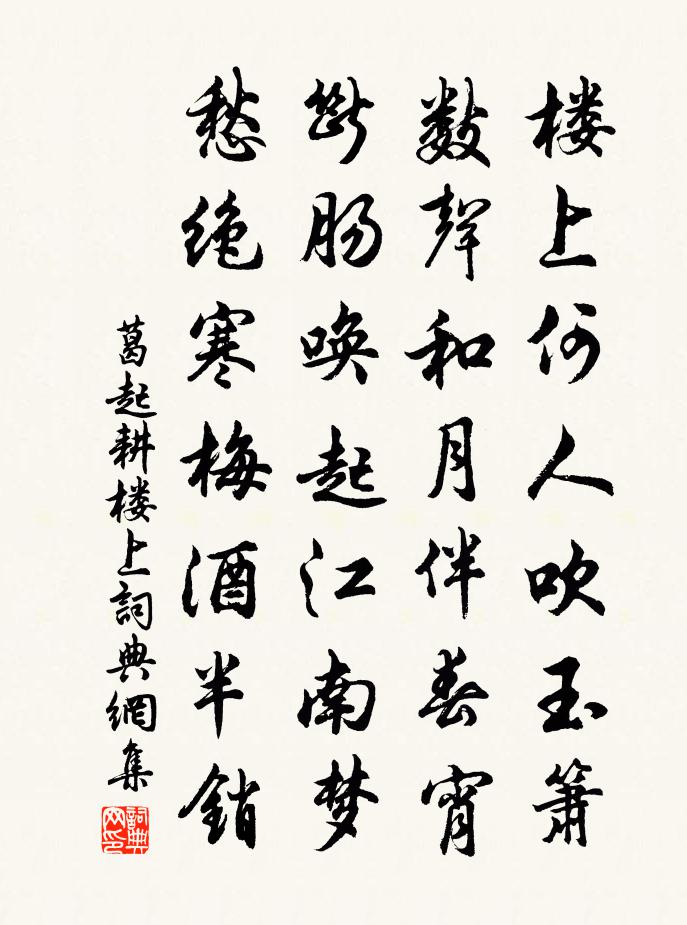 楼上何人吹玉箫
数声和月伴春宵
断肠唤起江南梦
愁绝寒梅酒半销
葛起耕楼上詞典網集
詞典网印